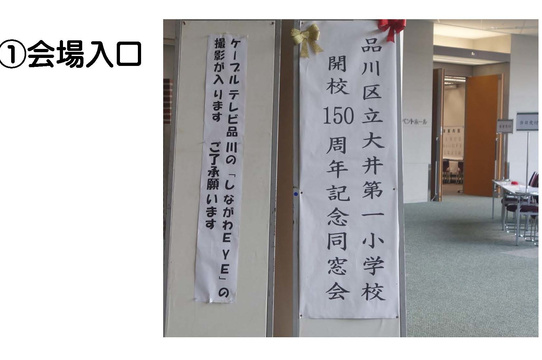 ①会場入口
品川区立大井第一小学校
開校150周年記念同窓会
ケーブルテレビ品川の「しながわEYE」の
撮影が入ります　ご了承願います